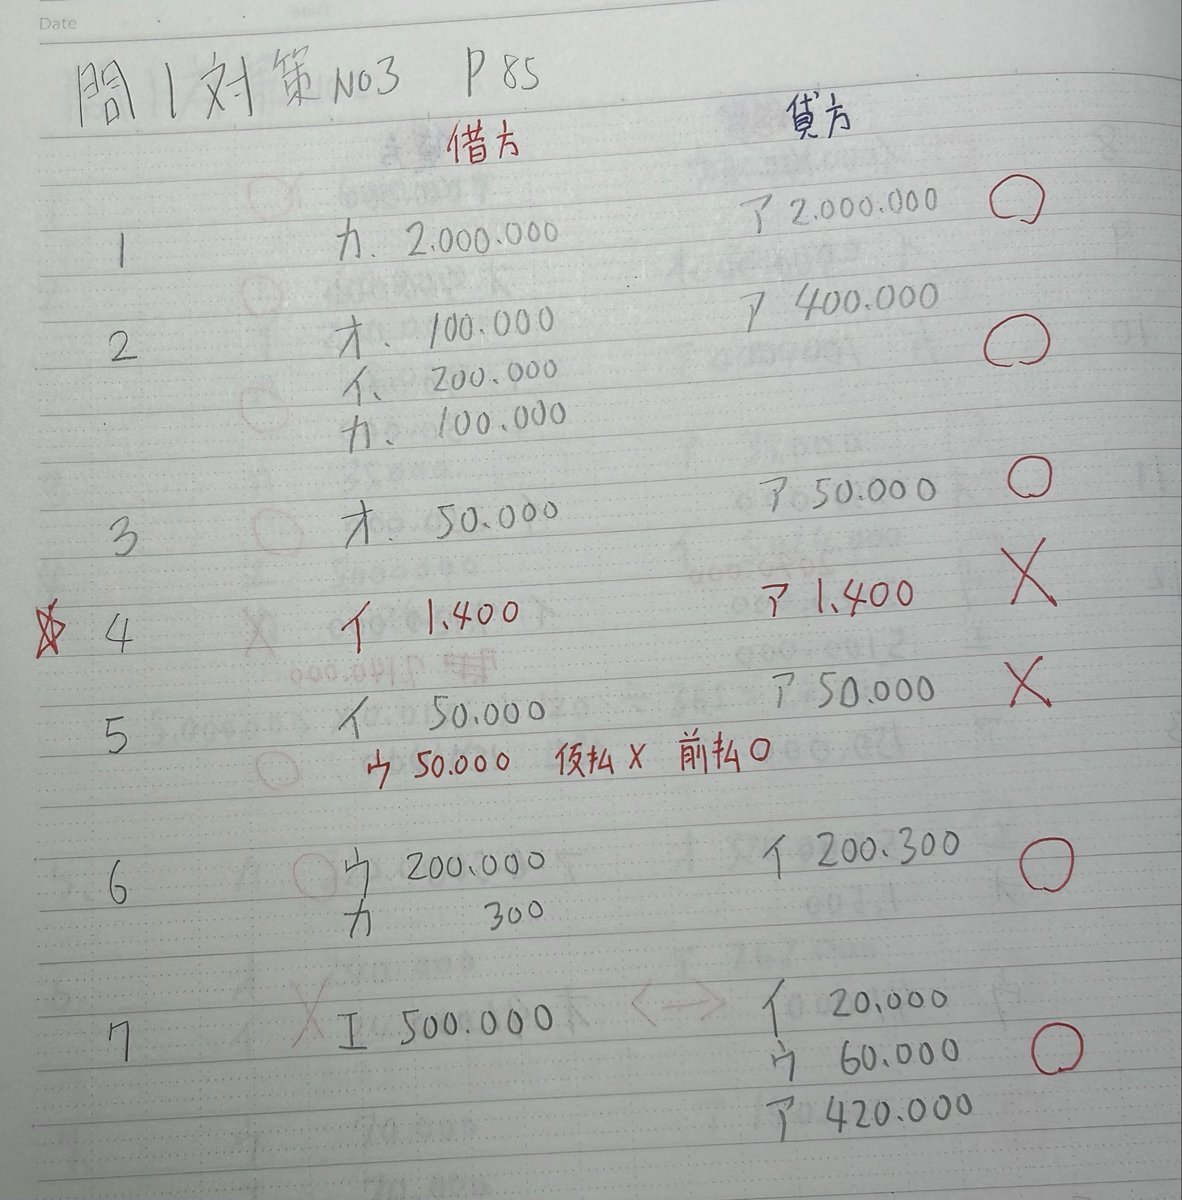 Date
問1対策 No3 P85
借方 貸方
1 カ. 2.000.000 ア 2.000.000 ○
2 オ. 100.000 ア 400.000 ○
イ. 200.000
カ. 100.000
3 オ. 50.000 ア 50.000 ○
☆ 4 イ 1.400 ア 1.400 ×
5 イ 50.000 ア 50.000 ×
ウ 50.000 仮払× 前払○
6 ウ 200.000 イ 200.300 ○
カ 300
7 エ 500.000 イ 20.000
ウ 60.000 ○
ア 420.000